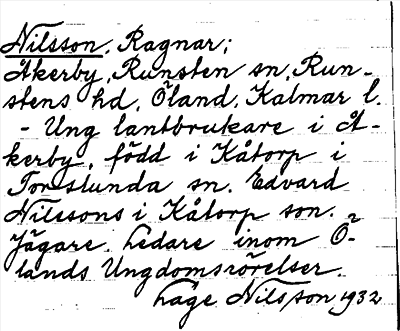 Nilsson, Ragnar;
Åkerby, Runsten sn, Run-
stens hd, Öland, Kalmar l.
- Ung lantbrukare i Å-
kerby, född i Kåtorp i
Torslunda sn. Edvard
Nilssons i Kåtorp son.
Jägare. Ledare inom Ö-
lands Ungdomsrörelser.
Lage Nilsson 1932